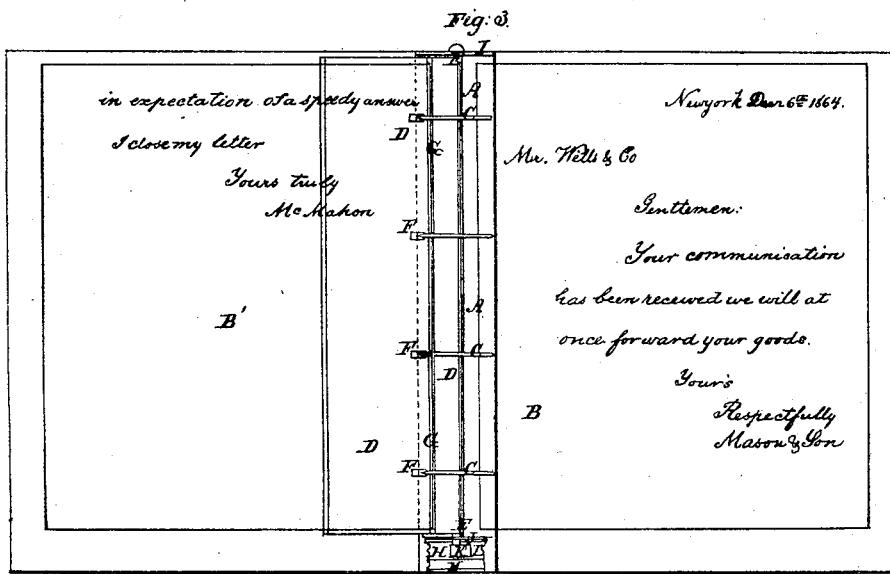 Fig: 3.
in expectation of a speedy answer
I close my letter
Yours truly
McMahon
B'
D
D
F
F
F
G
G
E
A
A
C
C
C
D
I
E
H K I
Newyork 6th 1864.
Mr. Wells & Co
Gentlemen:
Your communication
has been received we will at
once forward your goods.
Your's
Respectfully
Mason & Son
B